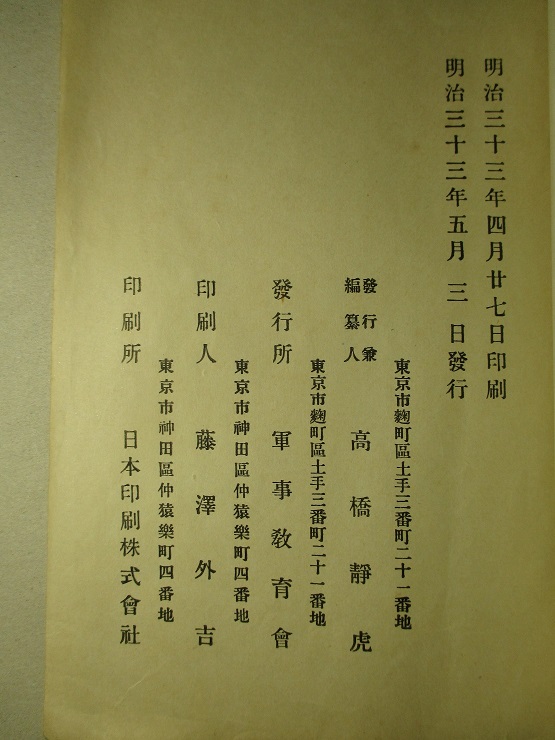 明治三十三年四月廿七日印刷
明治三十三年五月三日發行
東京市麴町區土手三番町二十一番地
發行兼
編纂人 高橋靜虎
東京市麴町區土手三番町二十一番地
發行所 軍事敎育會
東京市神田區仲猿樂町四番地
印刷人 藤澤外吉
東京市神田區仲猿樂町四番地
印刷所 日本印刷株式會社